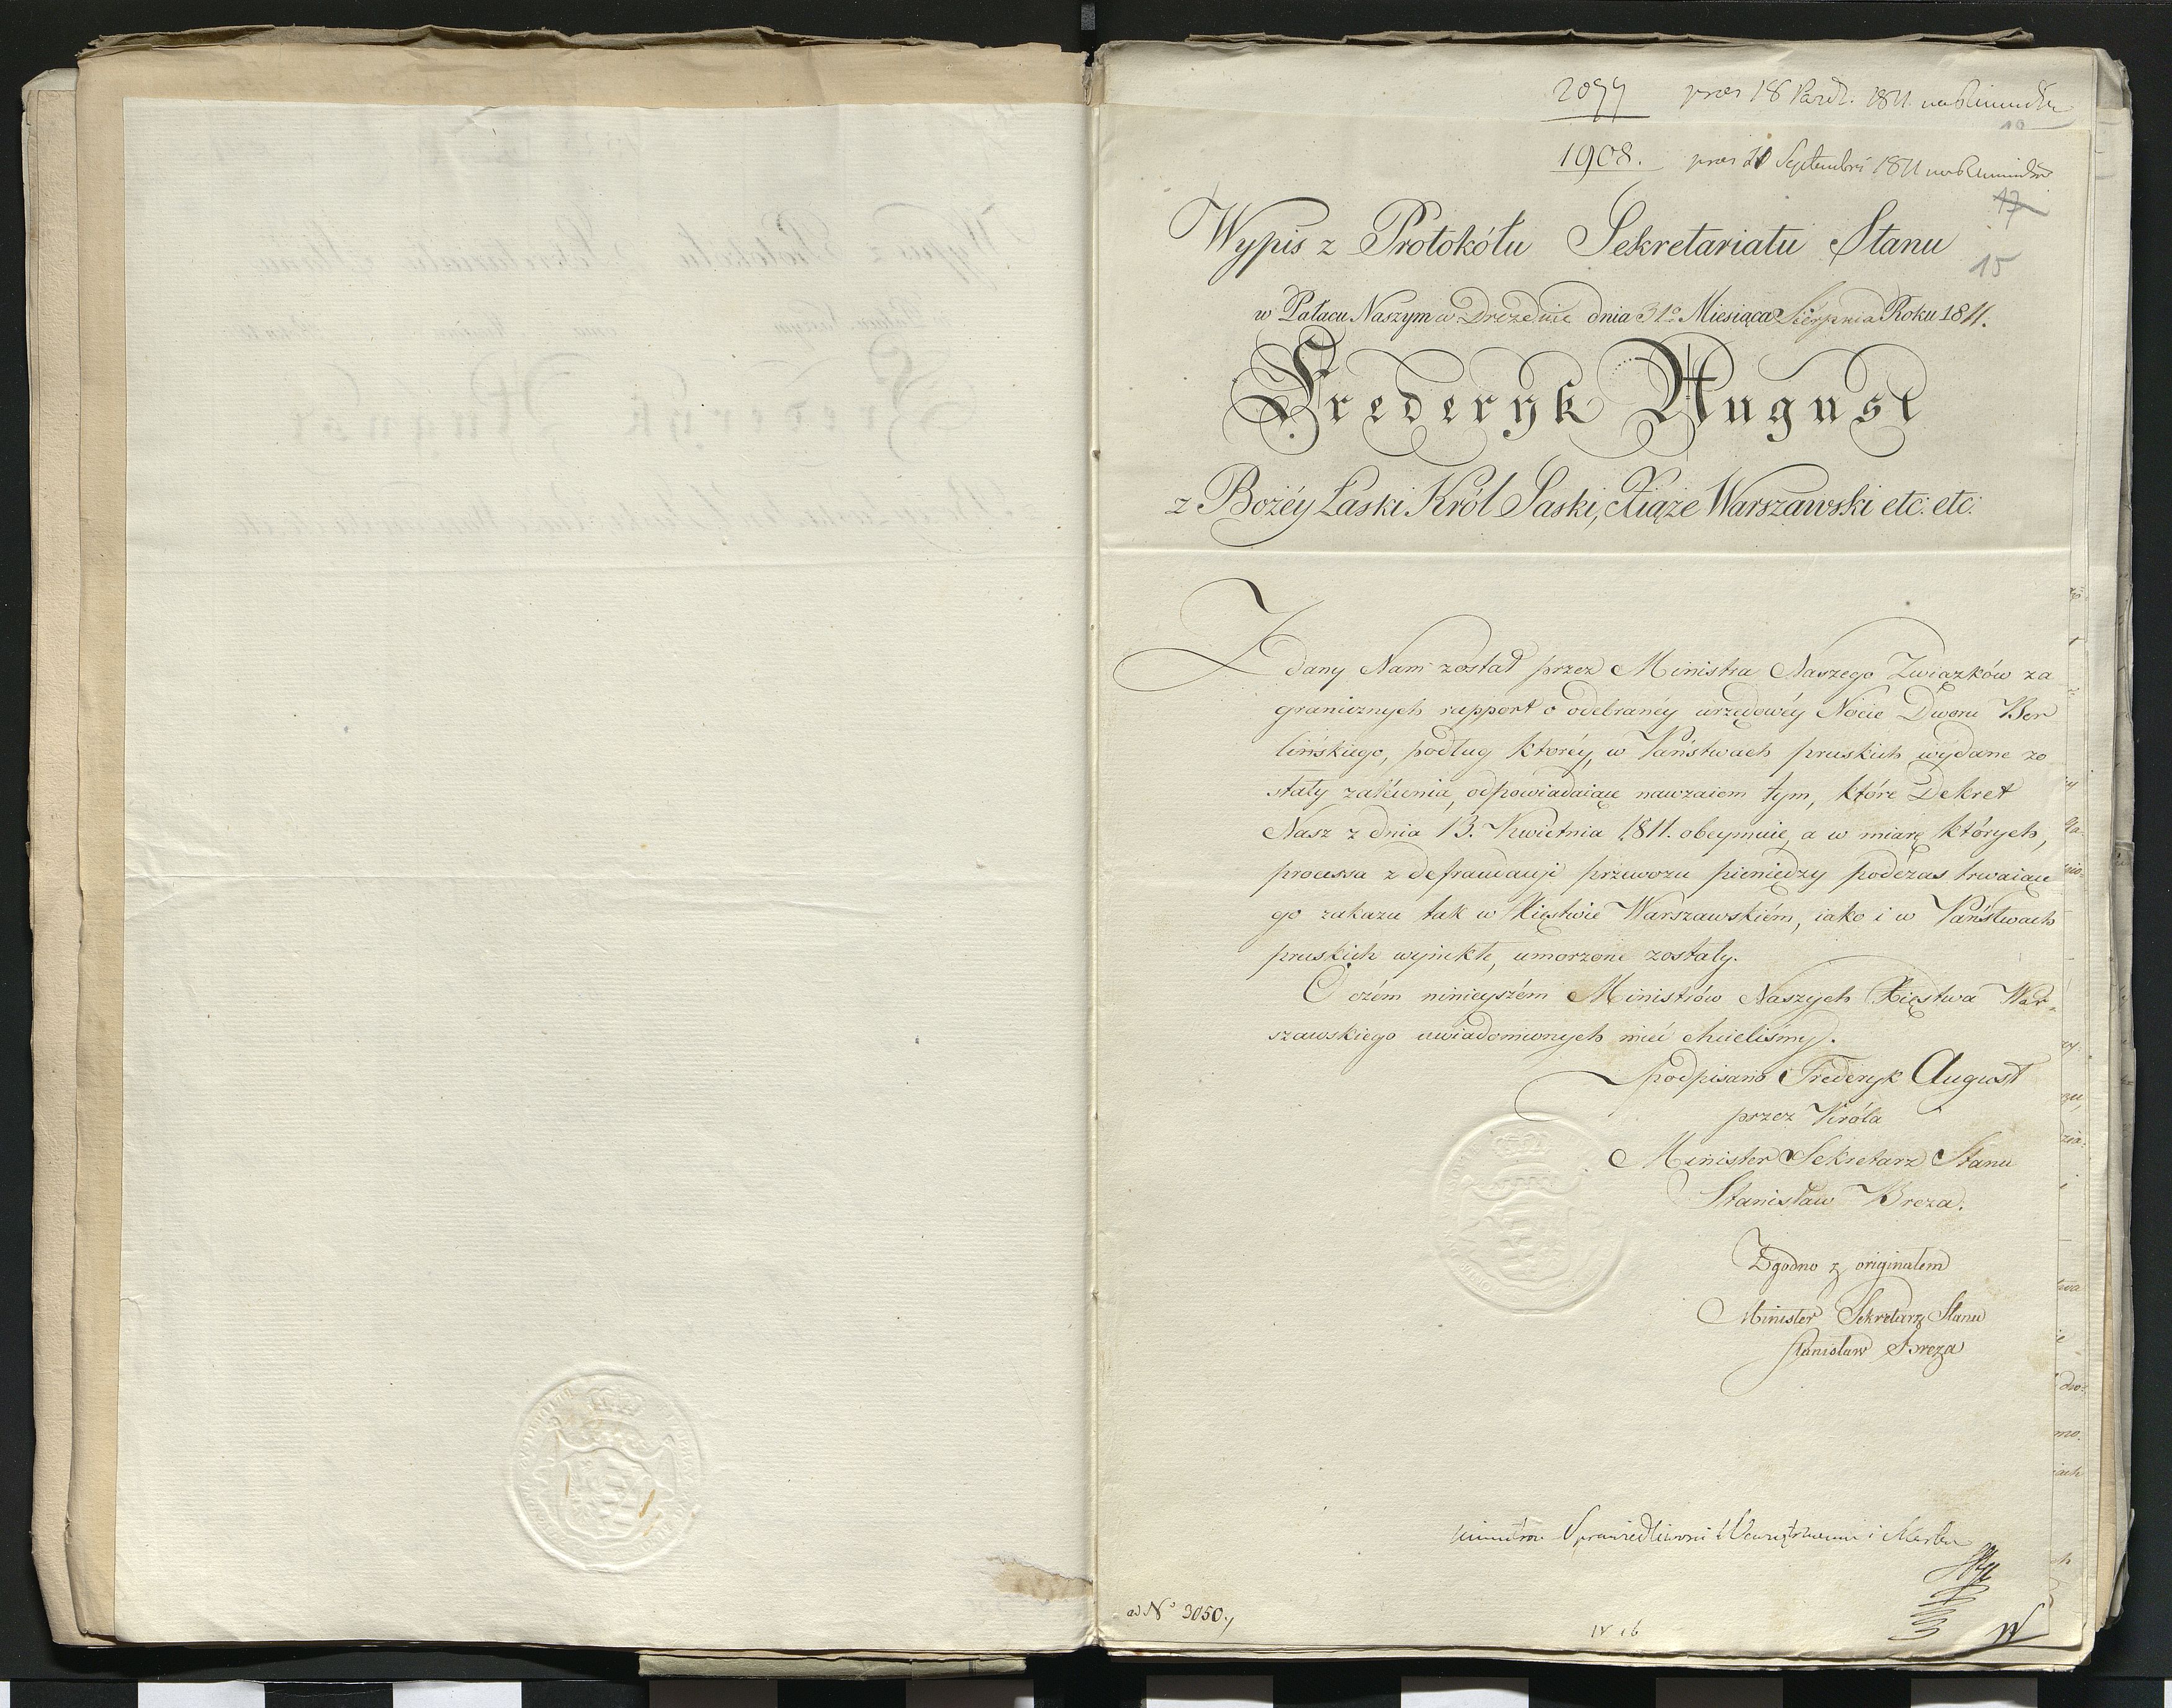 2077
1908.
17
15
Wypis z Protokółu Sekretariatu Stanu
w Pałacu Naszym w Dreźnie dnia 31º Miesiąca Sierpnia Roku 1811.
Frederyk August
z Bożéy Łaski Król Saski, Xiąże Warszawski etc: etc:
Zdany Nam został przez Ministra Naszego Związków za
granicznych rapport o odebranéy urzędowéy Nocie Dworu Ber
lińskiego, podług któréy, w Państwach pruskich wydane zo
stały zalecenia, odpowiadaiące nawzaiem tym, które Dekret
Nasz z dnia 13. Kwietnia 1811. obeymuie, a w miarę których,
processa z defraudacyi przewozu pieniędzy podczas trwaiące
go zakazu tak w Xięstwie Warszawskiém, iako i w Państwach
pruskich wynikłe, umorzone zostały.
O czém ninieyszém Ministrów Naszych Xięstwa War-
szawskiego uwiadomionych mieć chcieliśmy.
podpisano Frederyk August
przez Króla
Minister Sekretarz Stanu
Stanisław Breza.
Zgodno z originałem
Minister Sekretarz Stanu
Stanisław Breza
ad Nº 3050.